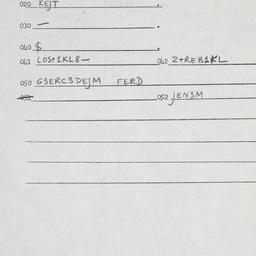 020 KEJT .
030 — .
040 $ .
041 LOST1KL8— 042 Z+REB1KL
050 G3ERC3DEJM FERD
051 052 JEN3M